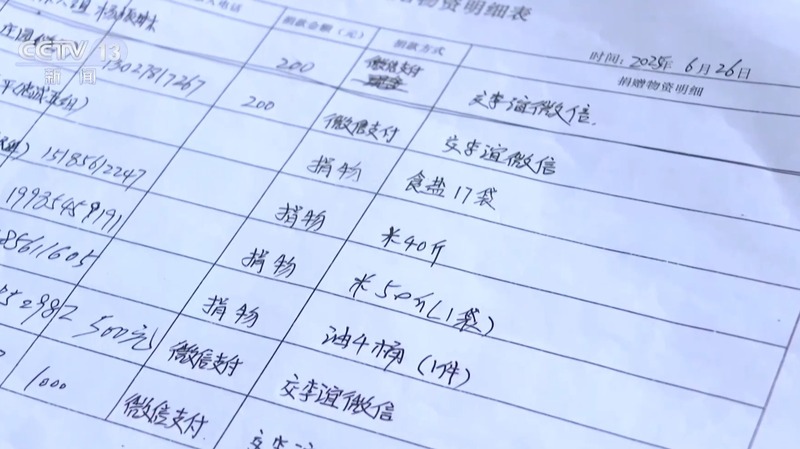 物资明细表
CCTV 13
新闻
时间：2025年6月26日
电话 捐款金额（元） 捐款方式 捐赠物资明细
13027817267 200 微信支付 交李谊微信.
200 微信支付 交李谊微信
15185612247 捐物 食盐17袋
19935459191 捐物 米40斤
85611605 捐物 米50斤（1袋）
捐物 油4桶（1件）
52982 500元 微信支付 交李谊微信
1000 微信支付 交李谊